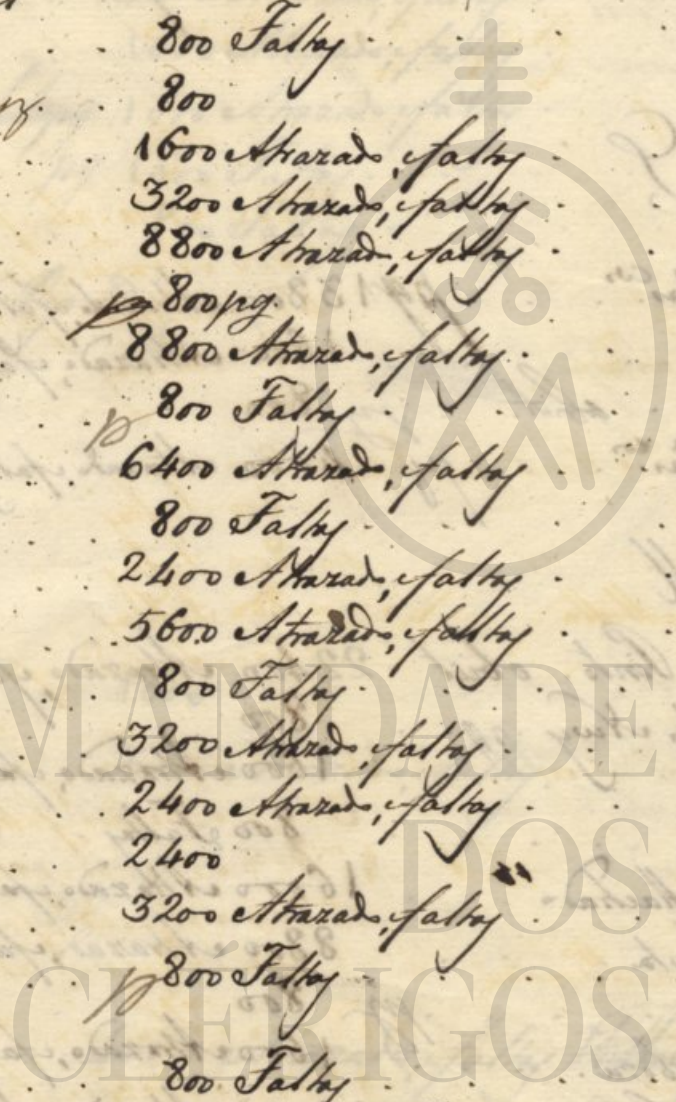 800 Faltas
800
1600 Atrazado, e faltas
3200 Atrazado, e faltas
8800 Atrazado, e faltas
800 pg
8800 Atrazado, e faltas
p 800 Faltas
6400 Atrazado, e faltas
800 Faltas
2400 Atrazado, e faltas
5600 Atrazado, e faltas
800 Faltas
3200 Atrazado, e faltas
2400 Atrazado, e faltas
2400
3200 Atrazado, e faltas
p 800 Faltas
800 Faltas
MANDADE
DOS
CLÉRIGOS